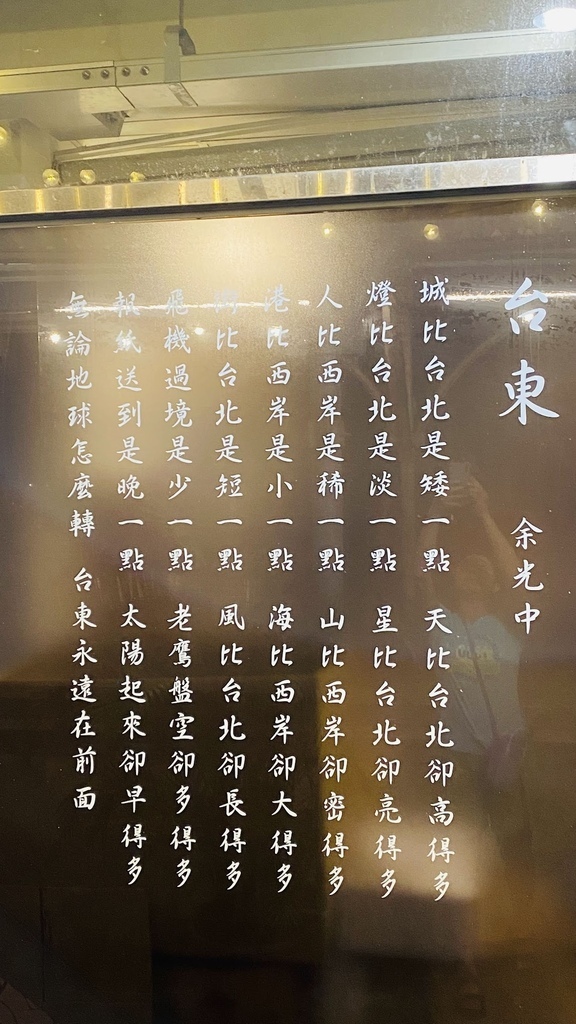 台東
余光中
城比台北是矮一點 天比台北卻高得多
燈比台北是淡一點 星比台北卻亮得多
人比西岸是稀一點 山比西岸卻密得多
港比西岸是小一點 海比西岸卻大得多
街比台北是短一點 風比台北卻長得多
飛機過境是少一點 老鷹盤空卻多得多
報紙送到是晚一點 太陽起來卻早得多
無論地球怎麼轉 台東永遠在前面